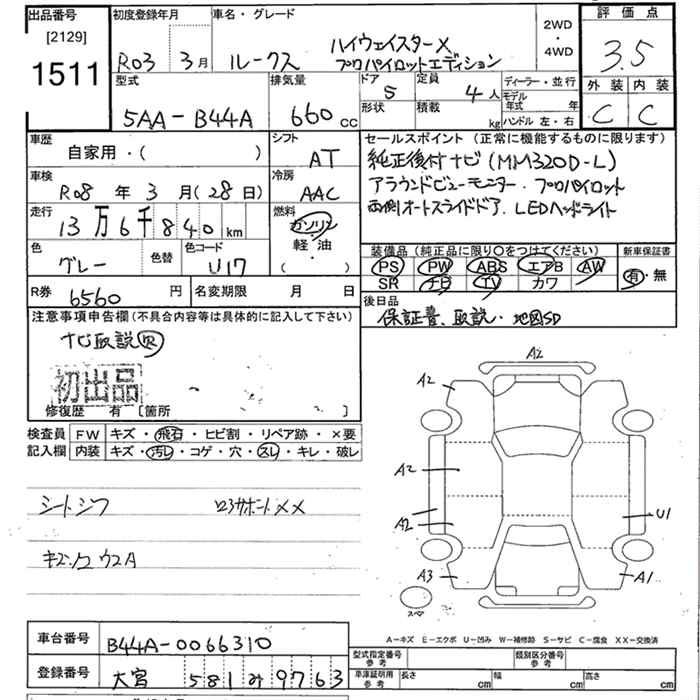 出品番号
[2129]
1511
初度登録年月
R03 3月
車名・グレード
ルークス ハイウェイスターX
プロパイロットエディション
2WD
・
4WD
評価点
3.5
外装 内装
C C
型式
5AA-B44A
排気量
660 cc
ドア 5
形状
定員 4人
積載 kg
ディーラー・並行
モデル
年式 年
ハンドル 左・右
車歴
自家用・( )
シフト
AT
車検
R08年 3月(28日)
冷房
AAC
走行
13万6千840km
燃料
ガソリン
・
軽・油
( )
色
グレー
色替
色コード
U17
セールスポイント(正常に機能するものに限ります)
純正後付ナビ(MM320D-L)
アラウンドビューモニター・プロパイロット
両側オートスライドドア、LEDヘッドライト
装備品(純正品に限り○をつけてください)
PS PW ABS エアB AW
SR ナビ TV カワ
新車保証書
有・無
R券 6560円
名変期限 月 日
後日品
保証書、取説・地図SD
注意事項申告欄(不具合内容等は具体的に記入して下さい)
ナビ取説R
初出品
修復歴 有 [箇所 ]
検査員
記入欄
FW キズ・飛石・ヒビ割・リペア跡・×要
内装 キズ・汚レ・コゲ・穴・スレ・キレ・破レ
シートシワ
ロアサポートXX
A2
A2
A2
A2
A3
U1
A1
スペア
A-キズ E-エクボ U-凹み W-補修跡 S-サビ C-腐食 XX-交換済
車台番号 B44A-0066310
登録番号 大宮 581 み 9763
型式指定番号
参考
類別区分番号
参考
車庫証明用
参考
長さ cm 幅 cm 高さ cm